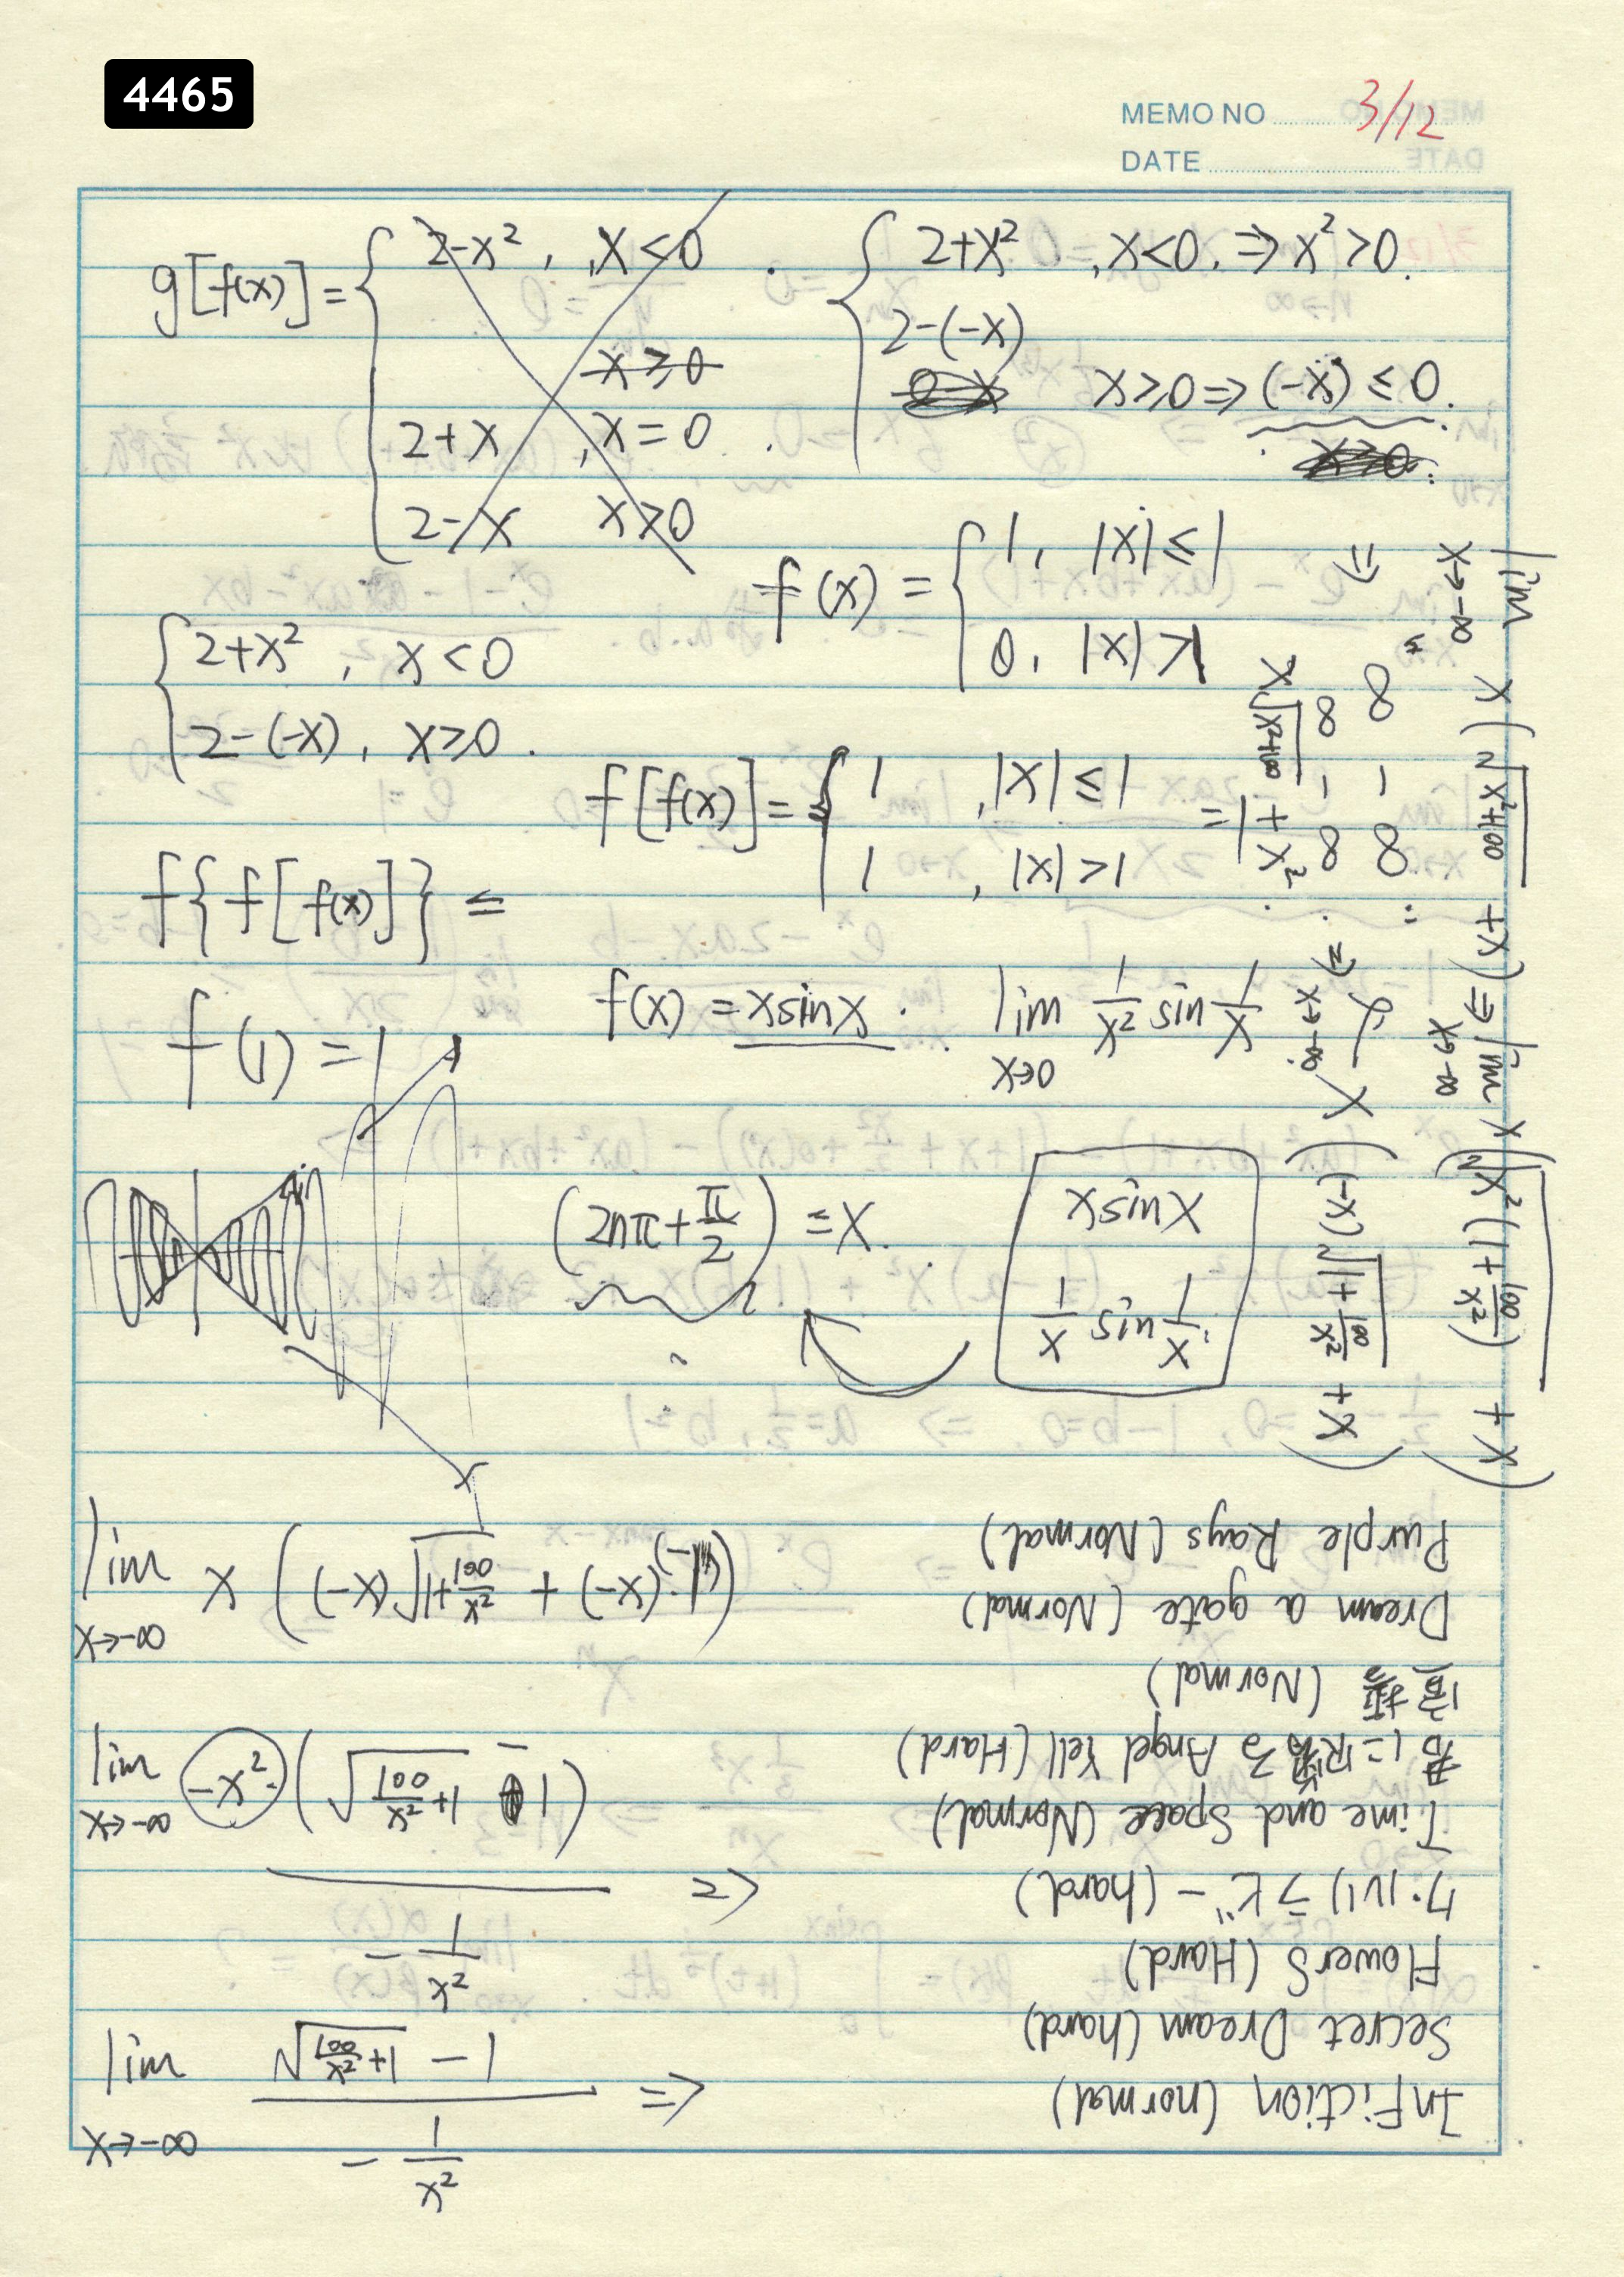 4465
MEMO NO 3/12
DATE
g[f(x)] = { 2-x², x<0 .
x≥0
2+x , x=0 .
2-x x>0
{ 2+x² , x<0, ⇒ x²>0.
2-(-x)
x≥0 ⇒ (-x) ≤ 0.
x≥0
{ 2+x² , x<0
2-(-x), x≥0 .
f(x) = { 1, |x|≤1
0, |x|>1
f[f(x)] = { 1 , |x|≤1
1 , |x|>1
f{f[f(x)]} =
f(1) = 1
f(x) = x sin x . lim x→0 1/x² sin 1/x
(2nπ+π/2) = x.
x sin x
1/x sin 1/x
lim x→-∞ x(√x²+100 + x) ⇒ lim x→-∞ x(√x²(1+100/x²) + x)
⇒ ∞ - ∞
x√x²+100 + x² . ⇒ x→-∞ x((-x)√1+100/x² + x)
lim x→-∞ x((-x)√1+100/x² + (-x)·(-1))
lim x→-∞ -x²(√100/x²+1 - 1)
- 1/x²
lim x→-∞ √100/x²+1 - 1 ⇒
- 1/x²
InFiction (normal)
Secret Dream (hard)
Flowers (Hard)
ワ・リバリラビー (hard)
Time and Space (Normal)
Angel Yell (Hard)
(Normal)
Dream a gate (Normal)
Purple Rays (Normal)